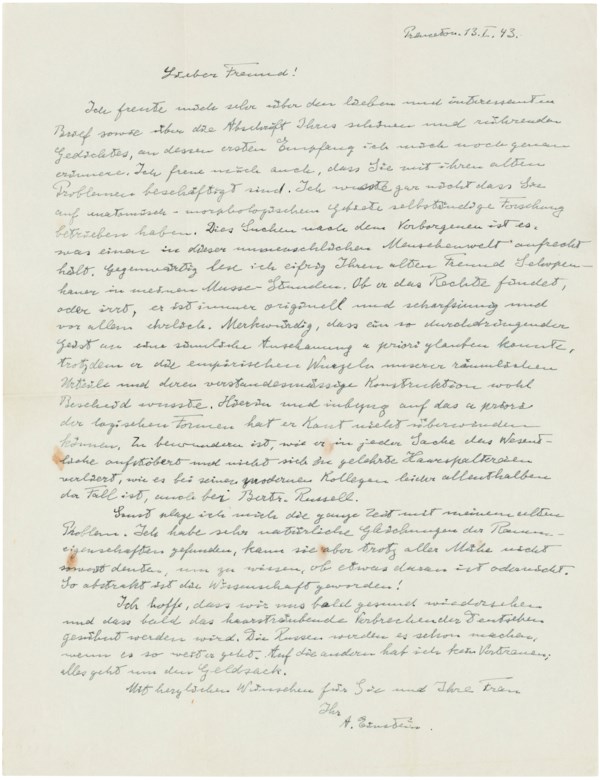 Princeton. 13.I.43.
Lieber Freund!
Ich freute mich sehr über den lieben und interessanten
Brief sowie über die Abschrift Ihres schönen und rührenden
Gedichtes, an dessen ersten Empfang ich mich noch genau
erinnere. Ich freue mich auch, dass Sie mit ihren alten
Problemen beschäftigt sind. Ich wusste gar nicht dass Sie
auf anatomisch-morphologischem Gebiete selbständige Forschung
betrieben haben. Dies Suchen nach dem Verborgenen ist es,
was einen in dieser unmenschlichen Menschenwelt aufrecht
hält. Gegenwärtig lese ich eifrig Ihren alten Freund Schopen-
hauer in meinen Musse-Stunden. Ob er das Rechte findet,
oder irrt, er ist immer originell und scharfsinnig und
vor allem ehrlich. Merkwürdig, dass ein so durchdringender
Geist an eine räumliche Anschauung a priori glauben konnte,
trotzdem er die empirischen Wurzeln unserer räumlichen
Urteile und deren verstandesmässige Konstruktion wohl
Bescheid wusste. Hierin und inbezug auf das a priori
der logischen Formen hat er Kant nicht überwinden
können. Zu bewundern ist, wie er in jeder Sache das Wesent-
liche aufstöbert und nicht sich in gelehrte Haarspaltereien
verliert, wie es bei seinen modernen Kollegen leider allenthalben
der Fall ist, auch bei Bertr. Russell.
Sonst plage ich mich die ganze Zeit mit meinem alten
Problem. Ich habe sehr natürliche Gleichungen der Raum-
eigenschaften gefunden, kann sie aber trotz aller Mühe nicht
soweit deuten, um zu wissen, ob etwas daran ist oder nicht.
So abstrakt ist die Wissenschaft geworden!
Ich hoffe, dass wir uns bald gesund wiedersehen
und dass bald das haarsträubende Verbrechen der Deutschen
gesühnt werden wird. Die Russen werden es schon machen,
wenn es so weiter geht. Auf die andern hab ich kein Vertrauen;
alles geht um den Geldsack.
Mit herzlichen Wünschen für Sie und Ihre Frau
Ihr
A. Einstein.